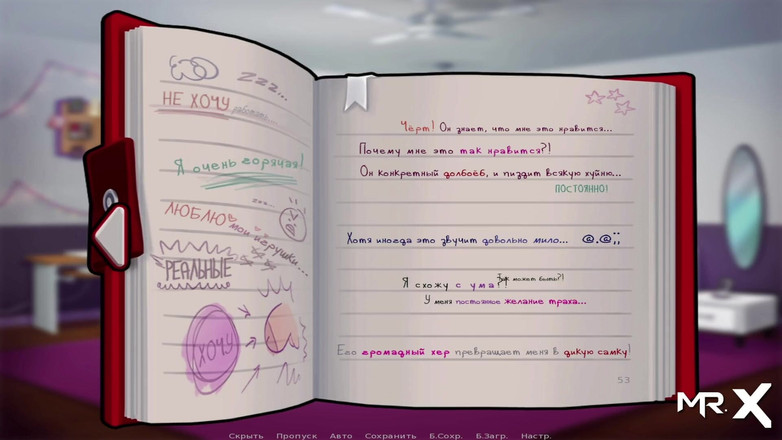 zzz...
НЕ ХОЧУ работать
Я очень горячая!
ЛЮБЛЮ
мои игрушки...
РЕАЛЬНЫЕ
ХОЧУ
Чёрт! Он знает, что мне это нравится...
Почему мне это так нравится?!
Он конкретный долбоёб, и пиздит всякую хуйню...
ПОСТОЯННО!
Хотя иногда это звучит довольно мило... @.@;;
Так может быть?!
Я схожу с ума?!
У меня постоянное желание траха...
Его громадный хер превращает меня в дикую самку!
53
MR. X
Скрыть Пропуск Авто Сохранить Б.Сохр. Б.Загр. Настр.